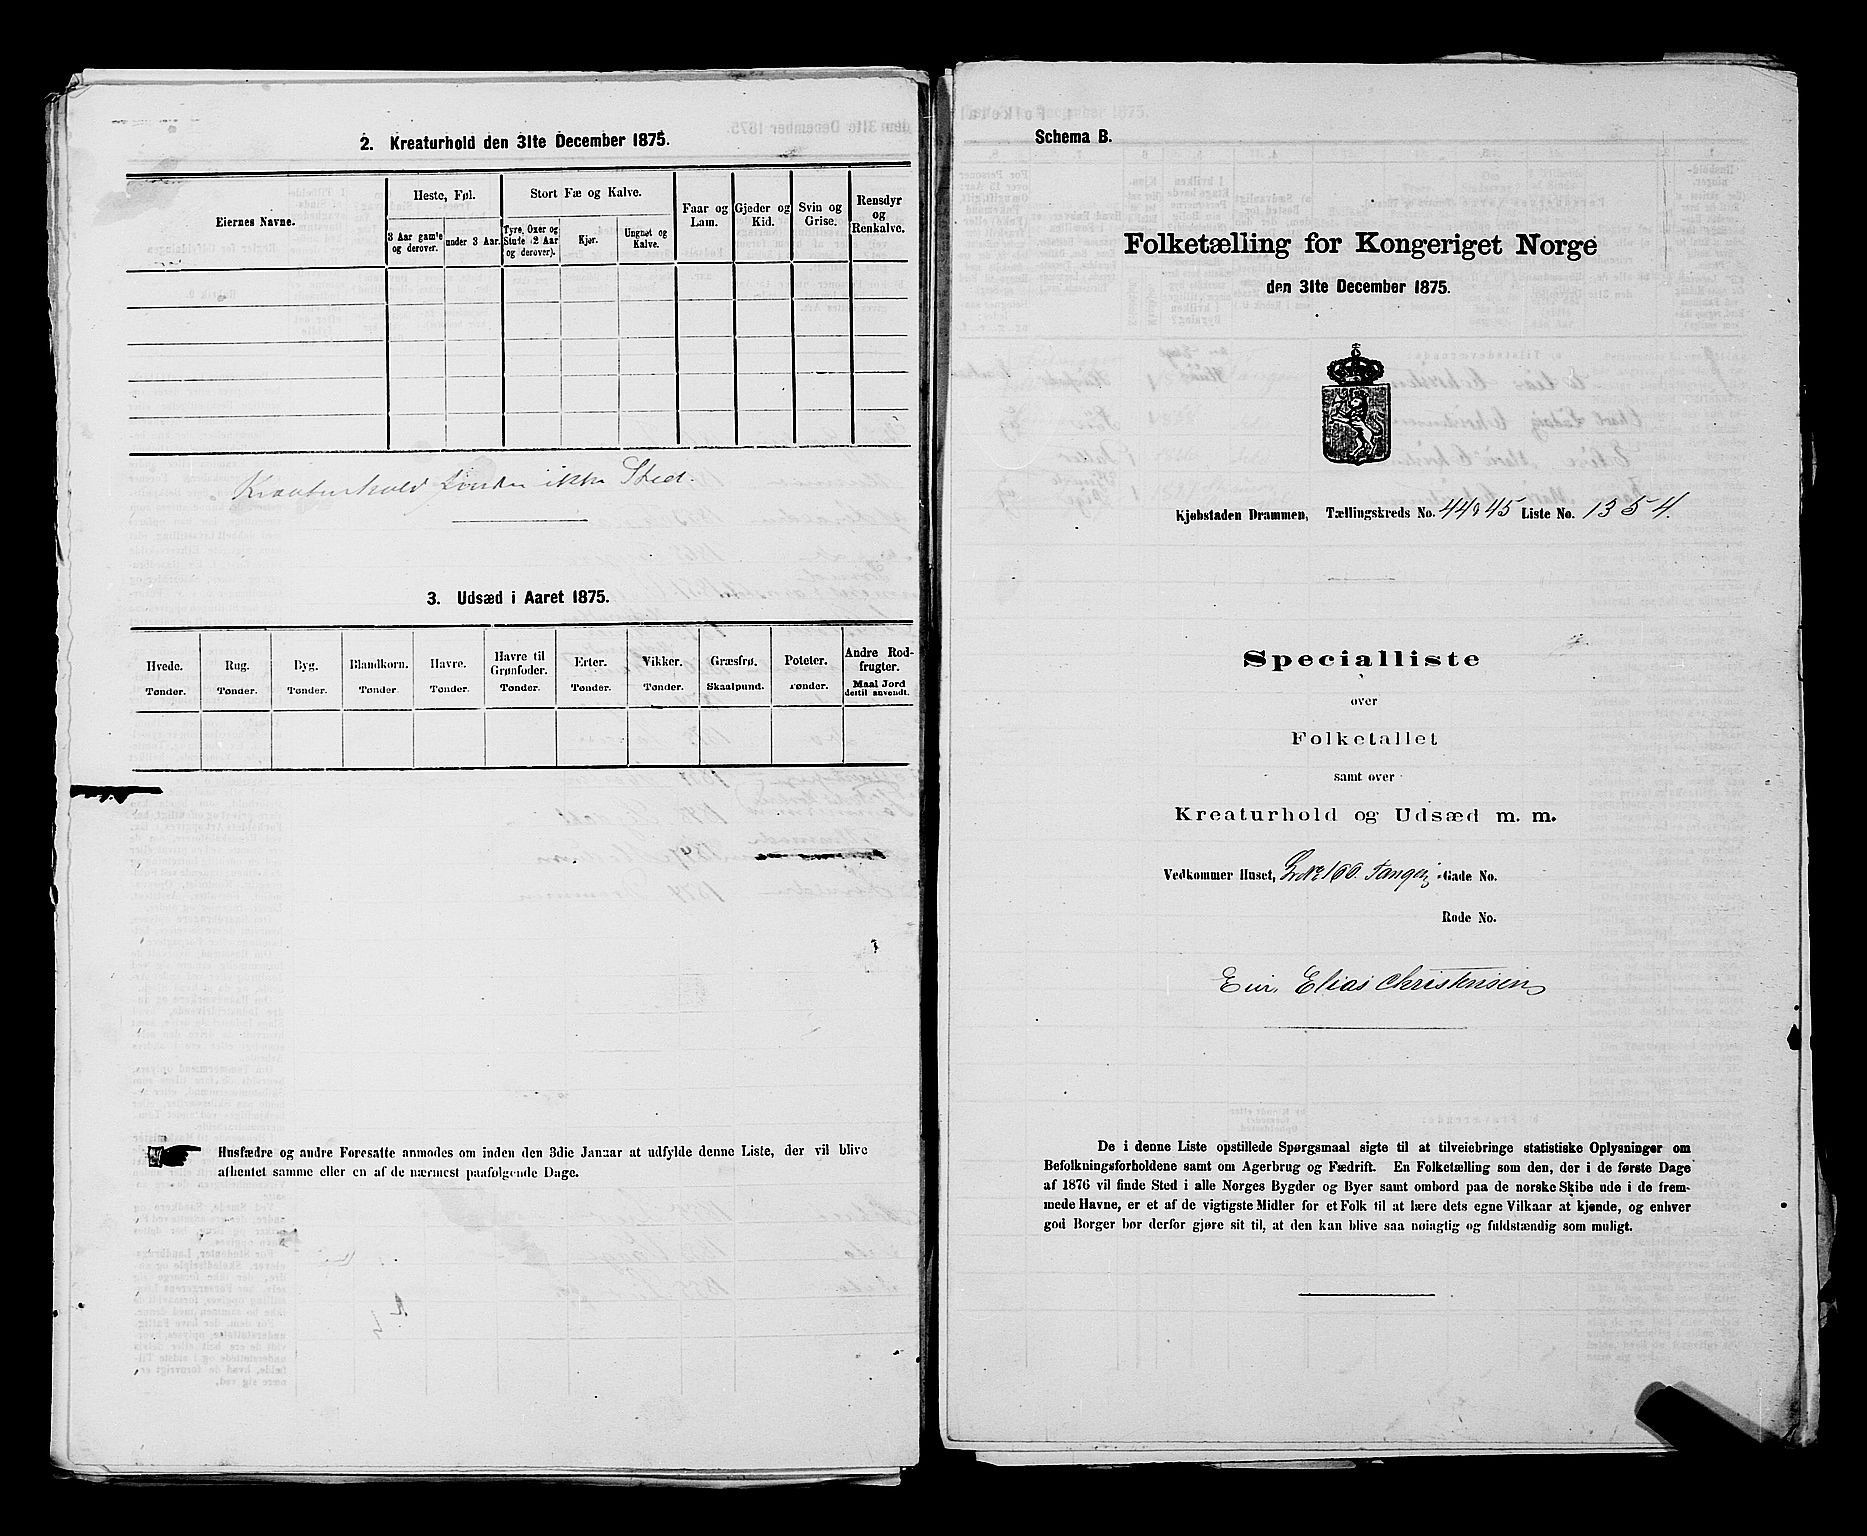 2. Kreaturhold den 31te December 1875.
Eiernes Navne.
Heste, Føl.
Stort Fæ og Kalve.
Faar og Lam.
Gjeder og Kid.
Svin og Grise.
Rensdyr og Renkalve.
3 Aar gamle og derover.
under 3 Aar.
Tyre, Oxer og Stude (2 Aar og derover).
Kjør.
Ungnøt og Kalve.
Kreaturhold finder ikke Sted.
3. Udsæd i Aaret 1875.
Hvede.
Rug.
Byg.
Blandkorn.
Havre.
Havre til Grønfoder.
Erter.
Vikker.
Græsfrø.
Poteter.
Andre Rodfrugter.
Tønder.
Tønder.
Tønder.
Tønder.
Tønder.
Tønder.
Tønder.
Tønder.
Skaalpund.
Tønder.
Maal Jord dertil anvendt.
Husfædre og andre Foresatte anmodes om inden den 3die Januar at udfylde denne Liste, der vil blive
afhentet samme eller en af de nærmest paafølgende Dage.
Schema B.
Folketælling for Kongeriget Norge
den 31te December 1875.
Kjøbstaden Drammen, Tællingskreds No. 44&45 Liste No. 1354.
Specialliste
over
Folketallet
samt over
Kreaturhold og Udsæd m. m.
Vedkommer Huset, 160. Tangen Gade No.
Rode No.
Eier. Elias Christensen
De i denne Liste opstillede Spørgsmaal sigte til at tilveiebringe statistiske Oplysninger om
Befolkningsforholdene samt om Agerbrug og Fædrift. En Folketælling som den, der i de første Dage
af 1876 vil finde Sted i alle Norges Bygder og Byer samt ombord paa de norske Skibe ude i de frem-
mede Havne, er et af de vigtigste Midler for et Folk til at lære dets egne Vilkaar at kjende, og enhver
god Borger bør derfor gjøre sit til, at den kan blive saa nøiagtig og fuldstændig som muligt.